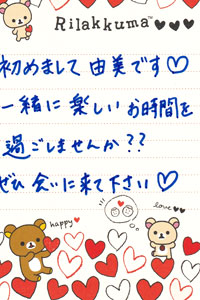 Rilakkuma™
初めまして 由美です♡
一緒に 楽しい お時間を
過ごしませんか??
ぜひ 会いに来て下さい♡
happy♥
love♥♥